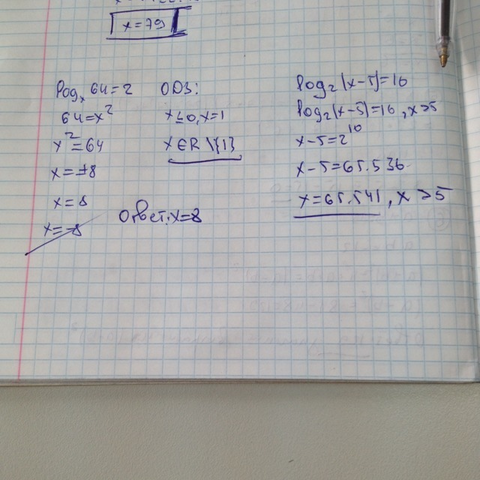 x=79
log_x 64=2
64=x²
x²=64
x=±8
x=8
x=-8
ОДЗ:
x≤0, x=1
x∈R\{1}
Ответ: x=8
log₂(x-5)=16
log₂(x-5)=16, x>5
x-5=2¹⁰
x-5=65.536
x=65.541, x>5